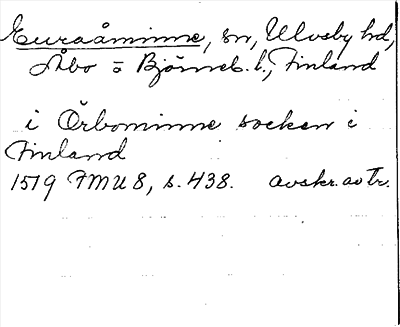 Euraåminne, sn, Ulvsby hd,
Åbo o Björneb. l., Finland
i Örbominne socken i
Finland
1519 FMU 8, s. 438. avskr. av Tr.